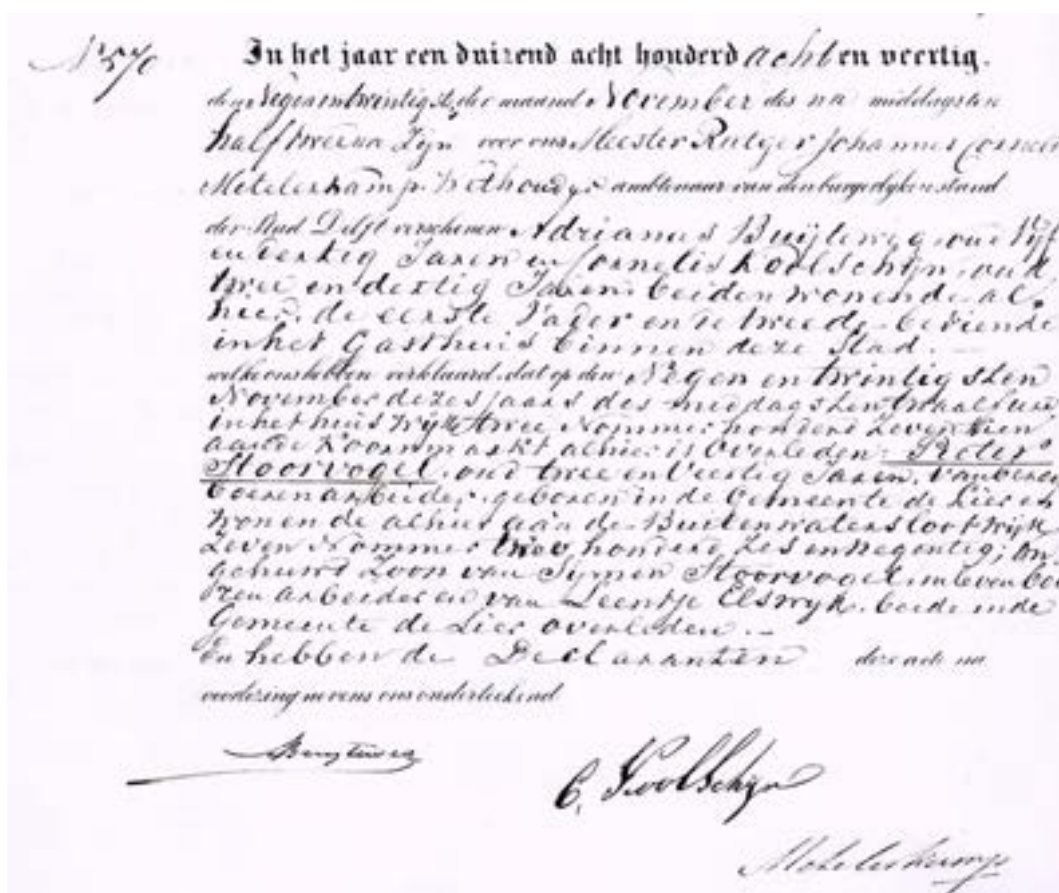 N 570
In het jaar een duizend acht honderd acht en veertig.
den Negenentwintigste der maand November des na middags ten
half twee ure Zijn voor ons Meester Rutger Johannes Cornelis
Metelerkamp Wethouder ambtenaar van den burgerlijken stand
der Stad Delft verschenen Adrianus Buijteweg, oud Vijf
en veertig Jaren en Cornelis Koolschijn, oud
twee en dertig Jaren, beiden wonende al,
hier, de eerste Vader en de tweede bediende
in het Gasthuis binnen deze Stad.
welke ons hebben verklaard, dat op den Negen en twintigsten
November dezes jaars des middags ten twaalf ure
in het huis Wijk twee Nommer honderd zeventien
aan de Koornmarkt alhier is overleden: Pieter
Stoorvogel, oud twee en Veertig Jaren, van beroep
boerenarbeider, geboren in de Gemeente de Lier en
wonende alhier aan de Buitenwatersloot Wijk
Zeven Nommer twee honderd zes en negentig; on,
gehuwd Zoon van Symen Stoorvogel in leven boe
ren arbeider en van Leentje Elswyk, beide in de
Gemeente de Lier overleden.
En hebben de Declaranten deze acte na
voorlezing nevens ons onderteekend
Buyteweg
C. Koolschijn
Metelerkamp